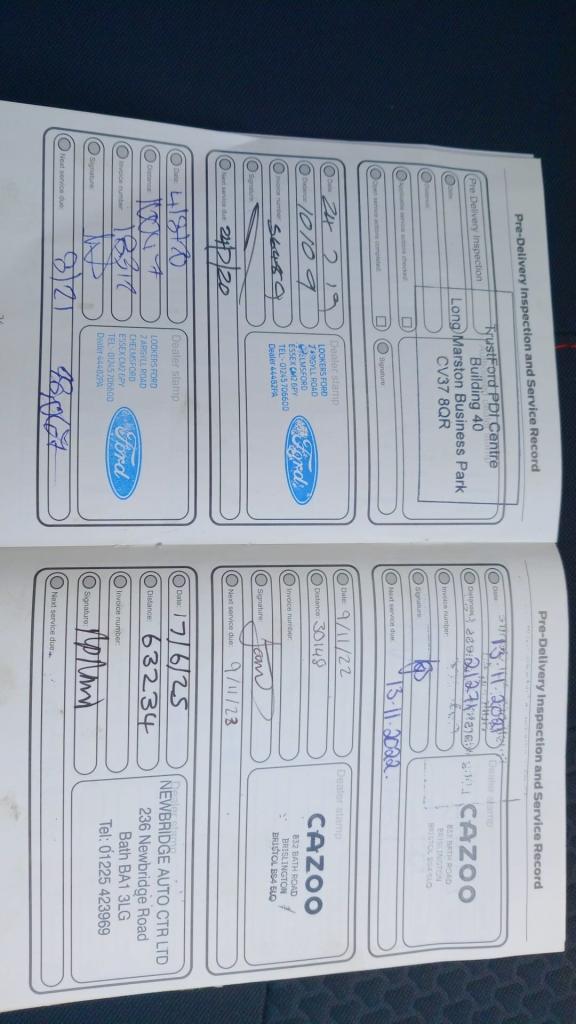 Pre-Delivery Inspection and Service Record
Pre Delivery Inspection
Date:
Distance:
Applicable service action checked:
Open service action completed:
Signature:
TrustFord PDI Centre
Building 40
Long Marston Business Park
CV37 8QR
Date: 24 7 19
Distance: 10109
Invoice number: 56489
Signature:
Next service due: 24/7/20
Dealer stamp
LOOKERS FORD
2 ARGYLL ROAD
CHELMSFORD
ESSEX CM2 6PY
TEL: 01245 706600
Dealer 44482PA
Ford
Date: 4/8/20
Distance:
Invoice number:
Signature:
Next service due: 8/21
Dealer stamp
LOOKERS FORD
2 ARGYLL ROAD
CHELMSFORD
ESSEX CM2 6PY
TEL: 01245 706600
Dealer 44482PA
Ford
Pre-Delivery Inspection and Service Record
Date: 13.11.2021
Distance:
Invoice number:
Signature:
Next service due: 13.11.2022.
Dealer stamp
CAZOO
832 BATH ROAD
BRISLINGTON
BRISTOL BS4 5LQ
Date: 9/11/22
Distance: 30148
Invoice number:
Signature:
Next service due: 9/11/23
Dealer stamp
CAZOO
832 BATH ROAD
BRISLINGTON
BRISTOL BS4 5LQ
Date: 17/6/25
Distance: 63234
Invoice number:
Signature:
Next service due:
Dealer stamp
NEWBRIDGE AUTO CTR LTD
236 Newbridge Road
Bath BA1 3LG
Tel: 01225 423969